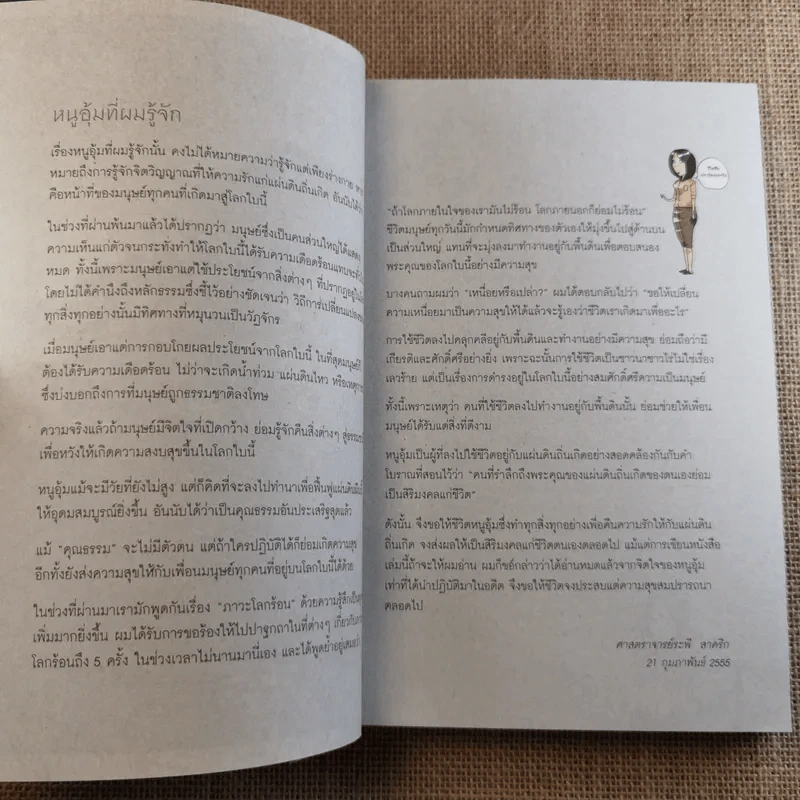 หนูอุ้มที่ผมรู้จัก
เรื่องหนูอุ้มที่ผมรู้จักนั้น คงไม่ได้หมายความว่ารู้จักแต่เพียงร่างกาย
หมายถึงการรู้จักจิตวิญญาณที่ให้ความรักแก่แผ่นดินถิ่นเกิด อันนับได้ว่า
คือหน้าที่ของมนุษย์ทุกคนที่เกิดมาสู่โลกใบนี้
ในช่วงที่ผ่านพ้นมาแล้วได้ปรากฏว่า มนุษย์ซึ่งเป็นคนส่วนใหญ่ได้แสดง
ความเห็นแก่ตัวจนกระทั่งทำให้โลกใบนี้ได้รับความเดือดร้อนแทบจะทั้ง
หมด ทั้งนี้เพราะมนุษย์เอาแต่ใช้ประโยชน์จากสิ่งต่างๆ ที่ปรากฏอยู่ใน
โดยไม่ได้คำนึงถึงหลักธรรมซึ่งชี้ไว้อย่างชัดเจนว่า วิถีการเปลี่ยนแปลงของ
ทุกสิ่งทุกอย่างนั้นมีทิศทางที่หมุนวนเป็นวัฏจักร
เมื่อมนุษย์เอาแต่การกอบโกยผลประโยชน์จากโลกใบนี้ ในที่สุดมนุษย์ก็
ต้องได้รับความเดือดร้อน ไม่ว่าจะเกิดน้ำท่วม แผ่นดินไหว หรือเหตุการ
ซึ่งบ่งบอกถึงการที่มนุษย์ถูกธรรมชาติลงโทษ
ความจริงแล้วถ้ามนุษย์มีจิตใจที่เปิดกว้าง ย่อมรู้จักคืนสิ่งต่างๆ สู่ธรรมชา
เพื่อหวังให้เกิดความสงบสุขขึ้นในโลกใบนี้
หนูอุ้มแม้จะมีวัยที่ยังไม่สูง แต่ก็คิดที่จะลงไปทำนาเพื่อฟื้นฟูแผ่นดินผืนนี้
ให้อุดมสมบูรณ์ยิ่งขึ้น อันนับได้ว่าเป็นคุณธรรมอันประเสริฐสุดแล้ว
แม้ “คุณธรรม” จะไม่มีตัวตน แต่ถ้าใครปฏิบัติได้ก็ย่อมเกิดความสุข
อีกทั้งยังส่งความสุขให้กับเพื่อนมนุษย์ทุกคนที่อยู่บนโลกใบนี้ได้ด้วย
ในช่วงที่ผ่านมาเรามักพูดกันเรื่อง “ภาวะโลกร้อน” ด้วยความรู้สึกเป็น
เพิ่มมากยิ่งขึ้น ผมได้รับการขอร้องให้ไปปาฐกถาในที่ต่างๆ เกี่ยวกับ
โลกร้อนถึง 5 ครั้ง ในช่วงเวลาไม่นานมานี่เอง และได้พูดย้ำอยู่เสมอว่า
“ถ้าโลกภายในใจของเรามันไม่ร้อน โลกภายนอกก็ย่อมไม่ร้อน”
ชีวิตมนุษย์ทุกวันนี้มักกำหนดทิศทางของตัวเองให้มุ่งขึ้นไปสู่ด้านบน
เป็นส่วนใหญ่ แทนที่จะมุ่งลงมาทำงานอยู่กับพื้นดินเพื่อตอบสนอง
พระคุณของโลกใบนี้อย่างมีความสุข
บางคนถามผมว่า “เหนื่อยหรือเปล่า?” ผมได้ตอบกลับไปว่า “ขอให้เปลี่ยน
ความเหนื่อยมาเป็นความสุขให้ได้แล้วจะรู้เองว่าชีวิตเราเกิดมาเพื่ออะไร”
การใช้ชีวิตลงไปคลุกคลีอยู่กับพื้นดินและทำงานอย่างมีความสุข ย่อมถือว่ามี
เกียรติและศักดิ์ศรีอย่างยิ่ง เพราะฉะนั้นการใช้ชีวิตเป็นชาวนาชาวไร่ไม่ใช่เรื่อง
เลวร้าย แต่เป็นเรื่องการดำรงอยู่ในโลกใบนี้อย่างสมศักดิ์ศรีความเป็นมนุษย์
ทั้งนี้เพราะเหตุว่า คนที่ใช้ชีวิตลงไปทำงานอยู่กับพื้นดินนั้น ย่อมช่วยให้เพื่อน
มนุษย์ได้รับแต่สิ่งที่ดีงาม
หนูอุ้มเป็นผู้ที่ลงไปใช้ชีวิตอยู่กับแผ่นดินถิ่นเกิดอย่างสอดคล้องกันกับคำ
โบราณที่สอนไว้ว่า “คนที่รำลึกถึงพระคุณของแผ่นดินถิ่นเกิดของตนเองย่อม
เป็นสิริมงคลแก่ชีวิต”
ดังนั้น จึงขอให้ชีวิตหนูอุ้มซึ่งทำทุกสิ่งทุกอย่างเพื่อคืนความรักให้กับแผ่นดิน
ถิ่นเกิด จงส่งผลให้เป็นสิริมงคลแก่ชีวิตตนเองตลอดไป แม้แต่การเขียนหนังสือ
เล่มนี้ถ้าจะให้ผมอ่าน ผมก็ขอกล่าวว่าได้อ่านหมดแล้วจากจิตใจของหนูอุ้ม
เท่าที่ได้นำปฏิบัติมาในอดีต จึงขอให้ชีวิตจงประสบแต่ความสุขสมปรารถนา
ตลอดไป
ศาสตราจารย์ระพี สาคริก
21 กุมภาพันธ์ 2555